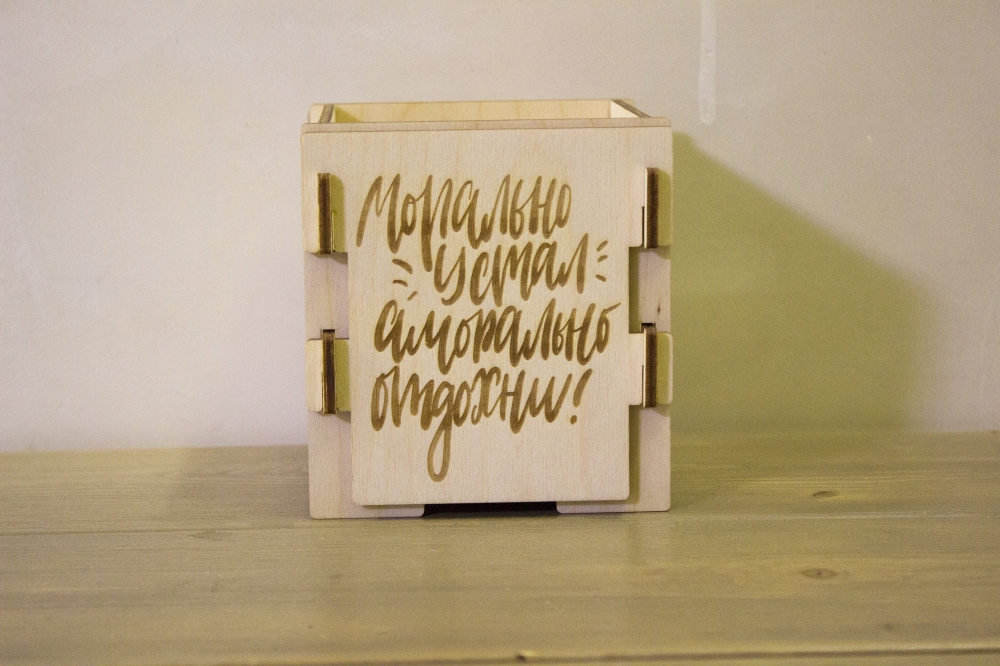 Морально
устал
аморально
отдохни!